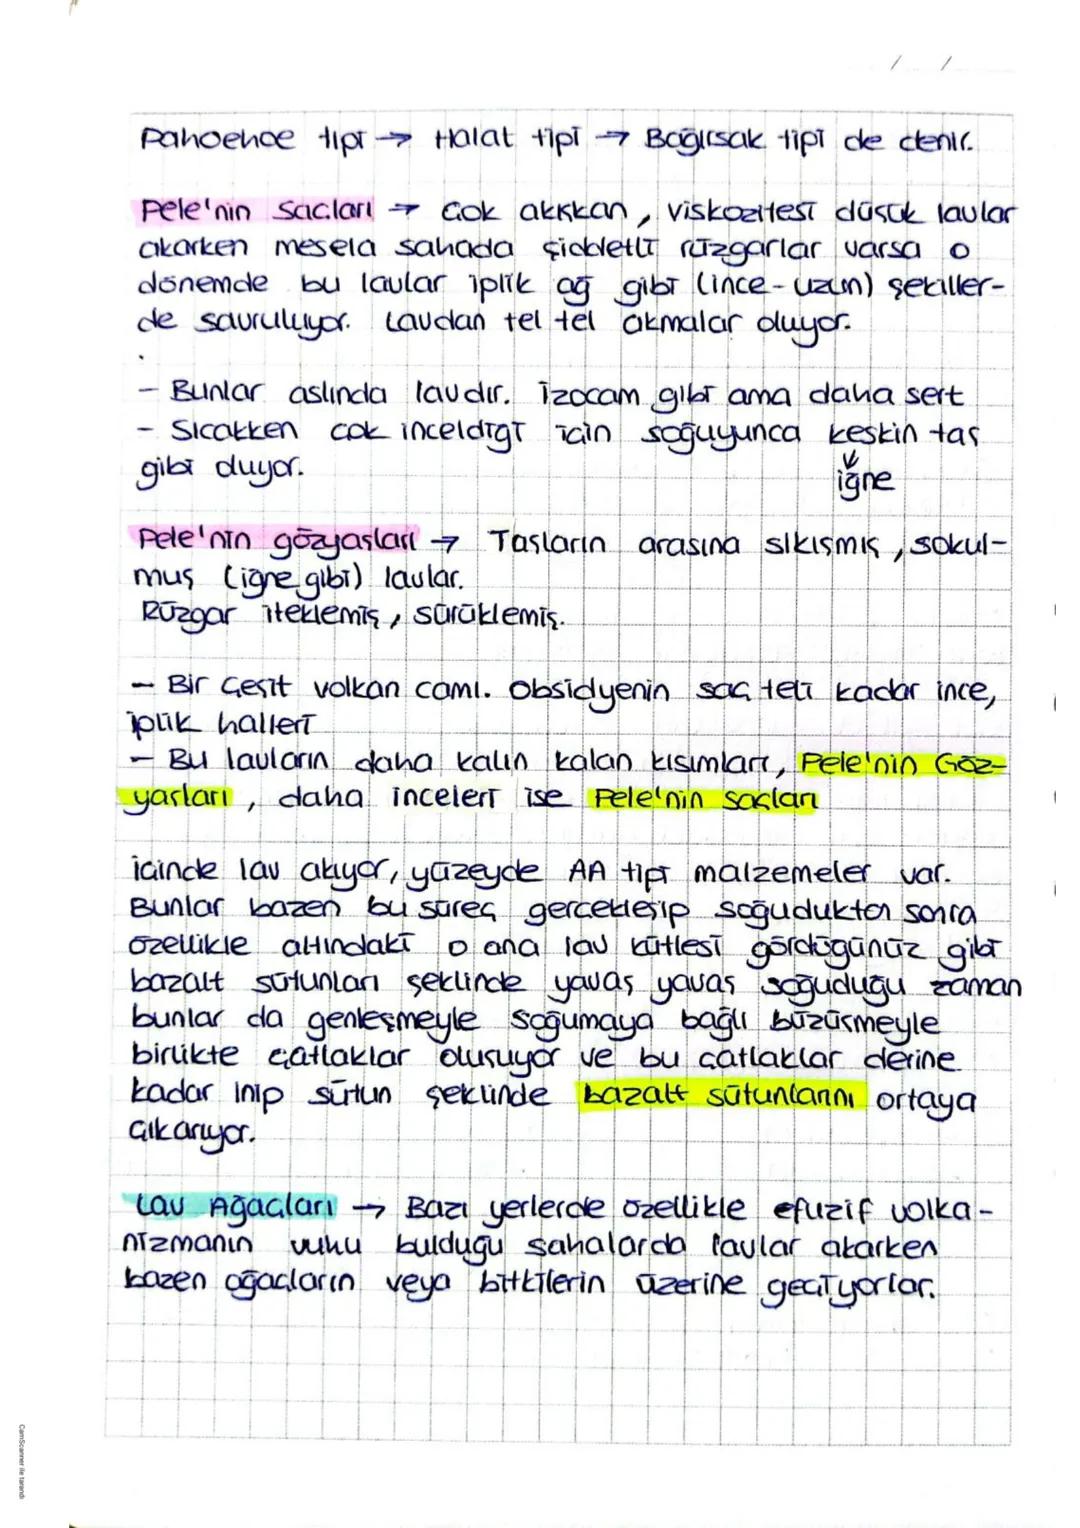 / /
Pahoehoe tipi → Halat tipi → Bağırsak tipi de denir.
Pele'nin Saçları → Çok akışkan, viskozitesi düşük lavlar
akarken mesela sahada şiddetli rüzgarlar varsa o
dönemde bu lavlar iplik ağ gibi (ince-uzun) şekiller-
de savruluyor. Lavdan tel tel akmalar oluyor.
- Bunlar aslında lavdır. İzocam gibi ama daha sert
- Sıcakken çok inceldiği için soğuyunca keskin taş
gibi oluyor.
iğne
Pele'nin gözyaşları → Taşların arasına sıkışmış, sokul-
muş (iğne gibi) lavlar.
Rüzgar iteklemiş, sürüklemiş.
- Bir çeşit volkan camı. Obsidyenin saç teli kadar ince,
iplik halleri
- Bu lavların daha kalın kalan kısımları, Pele'nin Göz-
yaşları, daha inceleri ise Pele'nin saçları
içinde lav akıyor, yüzeyde AA tipi malzemeler var.
Bunlar bazen bu süreç gerçekleşip soğuduktan sonra
özellikle altındaki o ana lav kütlesi gördüğünüz gibi
bazalt sütunları şeklinde yavaş yavaş soğuduğu zaman
bunlar da genleşmeyle soğumaya bağlı büzüşmeyle
birlikte çatlaklar oluşuyor ve bu çatlaklar derine
kadar inip sütun şeklinde bazalt sütunlarını ortaya
çıkarıyor.
Lav Ağaçları → Bazı yerlerde özellikle efuzif volka-
nizmanın vuku bulduğu sahalarda lavlar akarken
bazen ağaçların veya bitkilerin üzerine geçiyorlar.
CamScanner ile tarandı